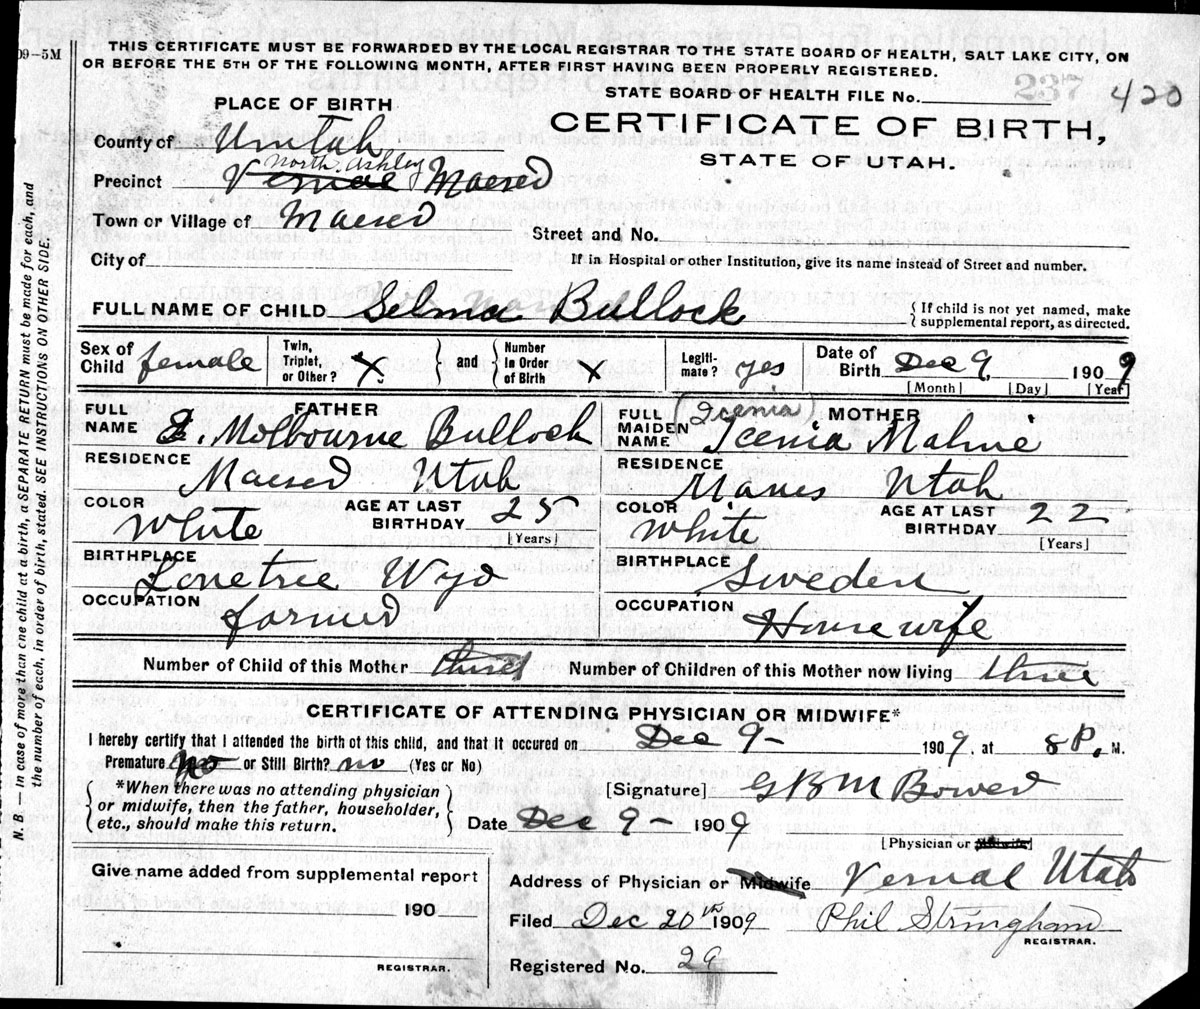 09–5M
THIS CERTIFICATE MUST BE FORWARDED BY THE LOCAL REGISTRAR TO THE STATE BOARD OF HEALTH, SALT LAKE CITY, ON
OR BEFORE THE 5TH OF THE FOLLOWING MONTH, AFTER FIRST HAVING BEEN PROPERLY REGISTERED.
STATE BOARD OF HEALTH FILE No. 237 420
PLACE OF BIRTH
CERTIFICATE OF BIRTH,
STATE OF UTAH.
County of Uintah
North Ashley
Precinct Vernal Maeser
Town or Village of Maeser
Street and No.
City of
If in Hospital or other Institution, give its name instead of Street and number.
FULL NAME OF CHILD Selma Bullock
{ If child is not yet named, make
supplemental report, as directed.
Sex of Child female
Twin, Triplet, or Other? X } and { Number In Order of Birth X
Legiti-mate? yes
Date of Birth Dec 9, 1909
[Month] [Day] [Year]
FULL NAME FATHER Melbourne Bullock
FULL MAIDEN NAME (Icenia) MOTHER Icenia Malme
RESIDENCE Maeser Utah
RESIDENCE Utah
COLOR White AGE AT LAST BIRTHDAY 25 [Years]
COLOR White AGE AT LAST BIRTHDAY 22 [Years]
BIRTHPLACE Lonetree Wyo
BIRTHPLACE Sweden
OCCUPATION farmer
OCCUPATION Housewife
Number of Child of this Mother three Number of Children of this Mother now living three
CERTIFICATE OF ATTENDING PHYSICIAN OR MIDWIFE*
I hereby certify that I attended the birth of this child, and that it occured on Dec 9– 1909, at 8 P. M.
Premature no or Still Birth? no (Yes or No)
{ *When there was no attending physician
or midwife, then the father, householder,
etc., should make this return. }
[Signature] Bower
Date Dec 9– 1909
[Physician or Midwife]
Give name added from supplemental report
190
REGISTRAR.
Address of Physician or Midwife Vernal Utah
Filed Dec 20th 1909 Phil Stringham
REGISTRAR.
Registered No. 29
N. B. — In case of more than one child at a birth, a SEPARATE RETURN must be made for each, and
the number of each, in order of birth, stated. SEE INSTRUCTIONS ON OTHER SIDE.